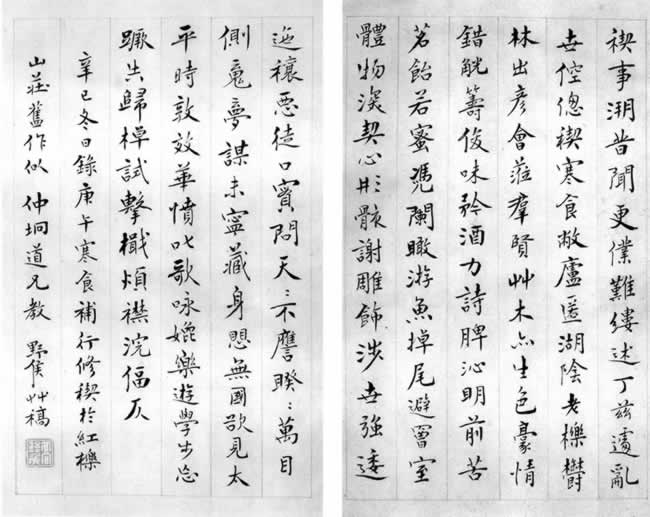 禊事溯昔聞更僕難縷述丁茲遘亂
世倥傯禊寒食敝廬匿湖陰老櫟鬱
林出彥會蒞羣賢艸木亦生色豪情
錯觥籌俊味矜酒力詩脾沁明前苦
茗飴若蜜憑闌瞰游魚掉尾避罾室
體物深契心形骸謝雕飾涉世強逶
迤穰惡徒口實問天〻不譍睽〻萬目
側夢謀未寧藏身愳無國欲見太
平時敦效華憤叱歌咏媲樂遊學步忘
蹶失歸棹試擊檝煩襟浣偪仄
辛巳冬日錄庚午寒食補行修禊於紅櫟
山莊舊作似 仲坰道兄教 野侯艸稿